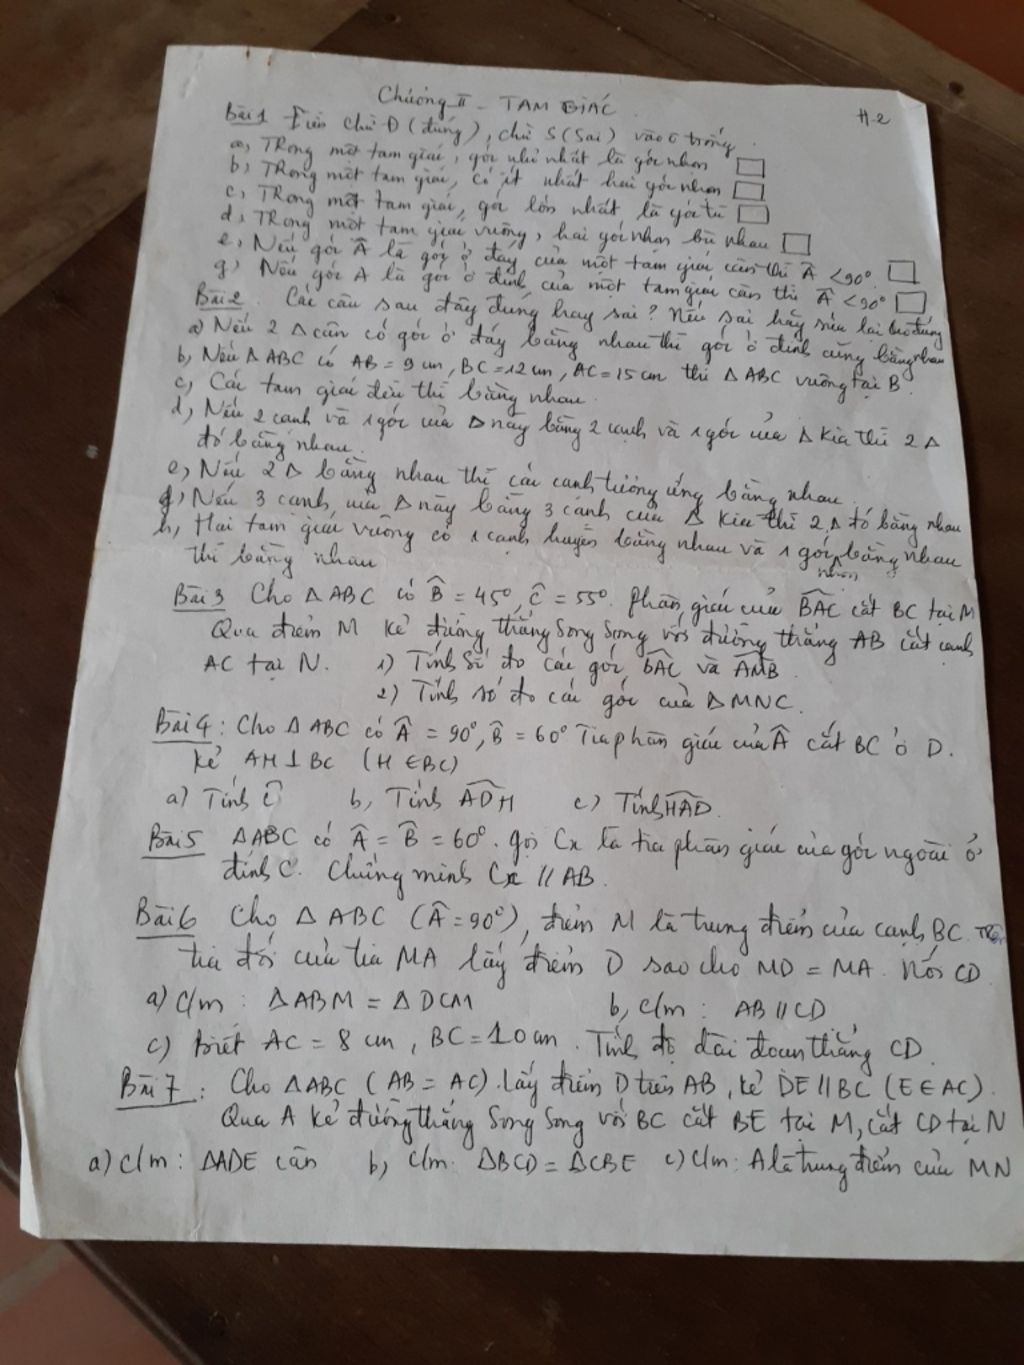 Chương II - TAM GIÁC
H-2
Bài 1 Điền chữ Đ (đúng), chữ S (Sai) vào ô trống
a, Trong một tam giác, góc nhỏ nhất là góc nhọn
b, Trong một tam giác, có ít nhất hai góc nhọn
c, Trong một tam giác, góc lớn nhất là góc tù
d, Trong một tam giác vuông, hai góc nhọn bù nhau
e, Nếu góc Â là góc ở đáy của một tam giác cân thì Â < 90°.
g, Nếu góc A là góc ở đỉnh của một tam giác cân thì Â < 90°
Bài 2. Các câu sau đây đúng hay sai? Nếu sai hãy sửa lại cho đúng
a) Nếu 2 Δ cân có góc ở đáy bằng nhau thì góc ở đỉnh cũng bằng nhau
b, Nếu Δ ABC có AB = 9 cm, BC = 12 cm, AC = 15 cm thì Δ ABC vuông tại B.
c, Các tam giác đều thì bằng nhau.
d, Nếu 2 cạnh và 1 góc của Δ này bằng 2 cạnh và 1 góc của Δ kia thì 2 Δ
đó bằng nhau.
e, Nếu 2 Δ bằng nhau thì các cạnh tương ứng bằng nhau.
g, Nếu 3 cạnh của Δ này bằng 3 cạnh của Δ kia thì 2 Δ đó bằng nhau
h, Hai tam giác vuông có 1 cạnh huyền bằng nhau và 1 góc nhọn bằng nhau
thì bằng nhau
Bài 3 Cho Δ ABC có B̂ = 45°, Ĉ = 55°. Phân giác của BAC cắt BC tại M
Qua điểm M kẻ đường thẳng song song với đường thẳng AB cắt cạnh
AC tại N. 1) Tính số đo các góc BAC và AMB
2) Tính số đo các góc của Δ MNC.
Bài 4: Cho Δ ABC có Â = 90°, B̂ = 60° Tia phân giác của Â cắt BC ở D.
Kẻ AH ⊥ BC (H ∈ BC)
a) Tính Ĉ b, Tính ADH c) Tính HAD.
Bài 5 ΔABC có Â = B̂ = 60°. gọi Cx là tia phân giác của góc ngoài ở
đỉnh C. Chứng minh Cx // AB.
Bài 6 Cho Δ ABC (Â = 90°), điểm M là trung điểm của cạnh BC. Trên
tia đối của tia MA lấy điểm D sao cho MD = MA. Nối CD
a) C/m : Δ ABM = Δ DCM b, C/m : AB // CD
c) Biết AC = 8 cm, BC = 10 cm. Tính độ dài đoạn thẳng CD.
Bài 7: Cho ΔABC (AB = AC). Lấy điểm D trên AB, kẻ DE // BC (E ∈ AC).
Qua A kẻ đường thẳng song song với BC cắt BE tại M, cắt CD tại N
a) C/m : ΔADE cân b, C/m: ΔBCD = ΔCBE c) C/m: A là trung điểm của MN